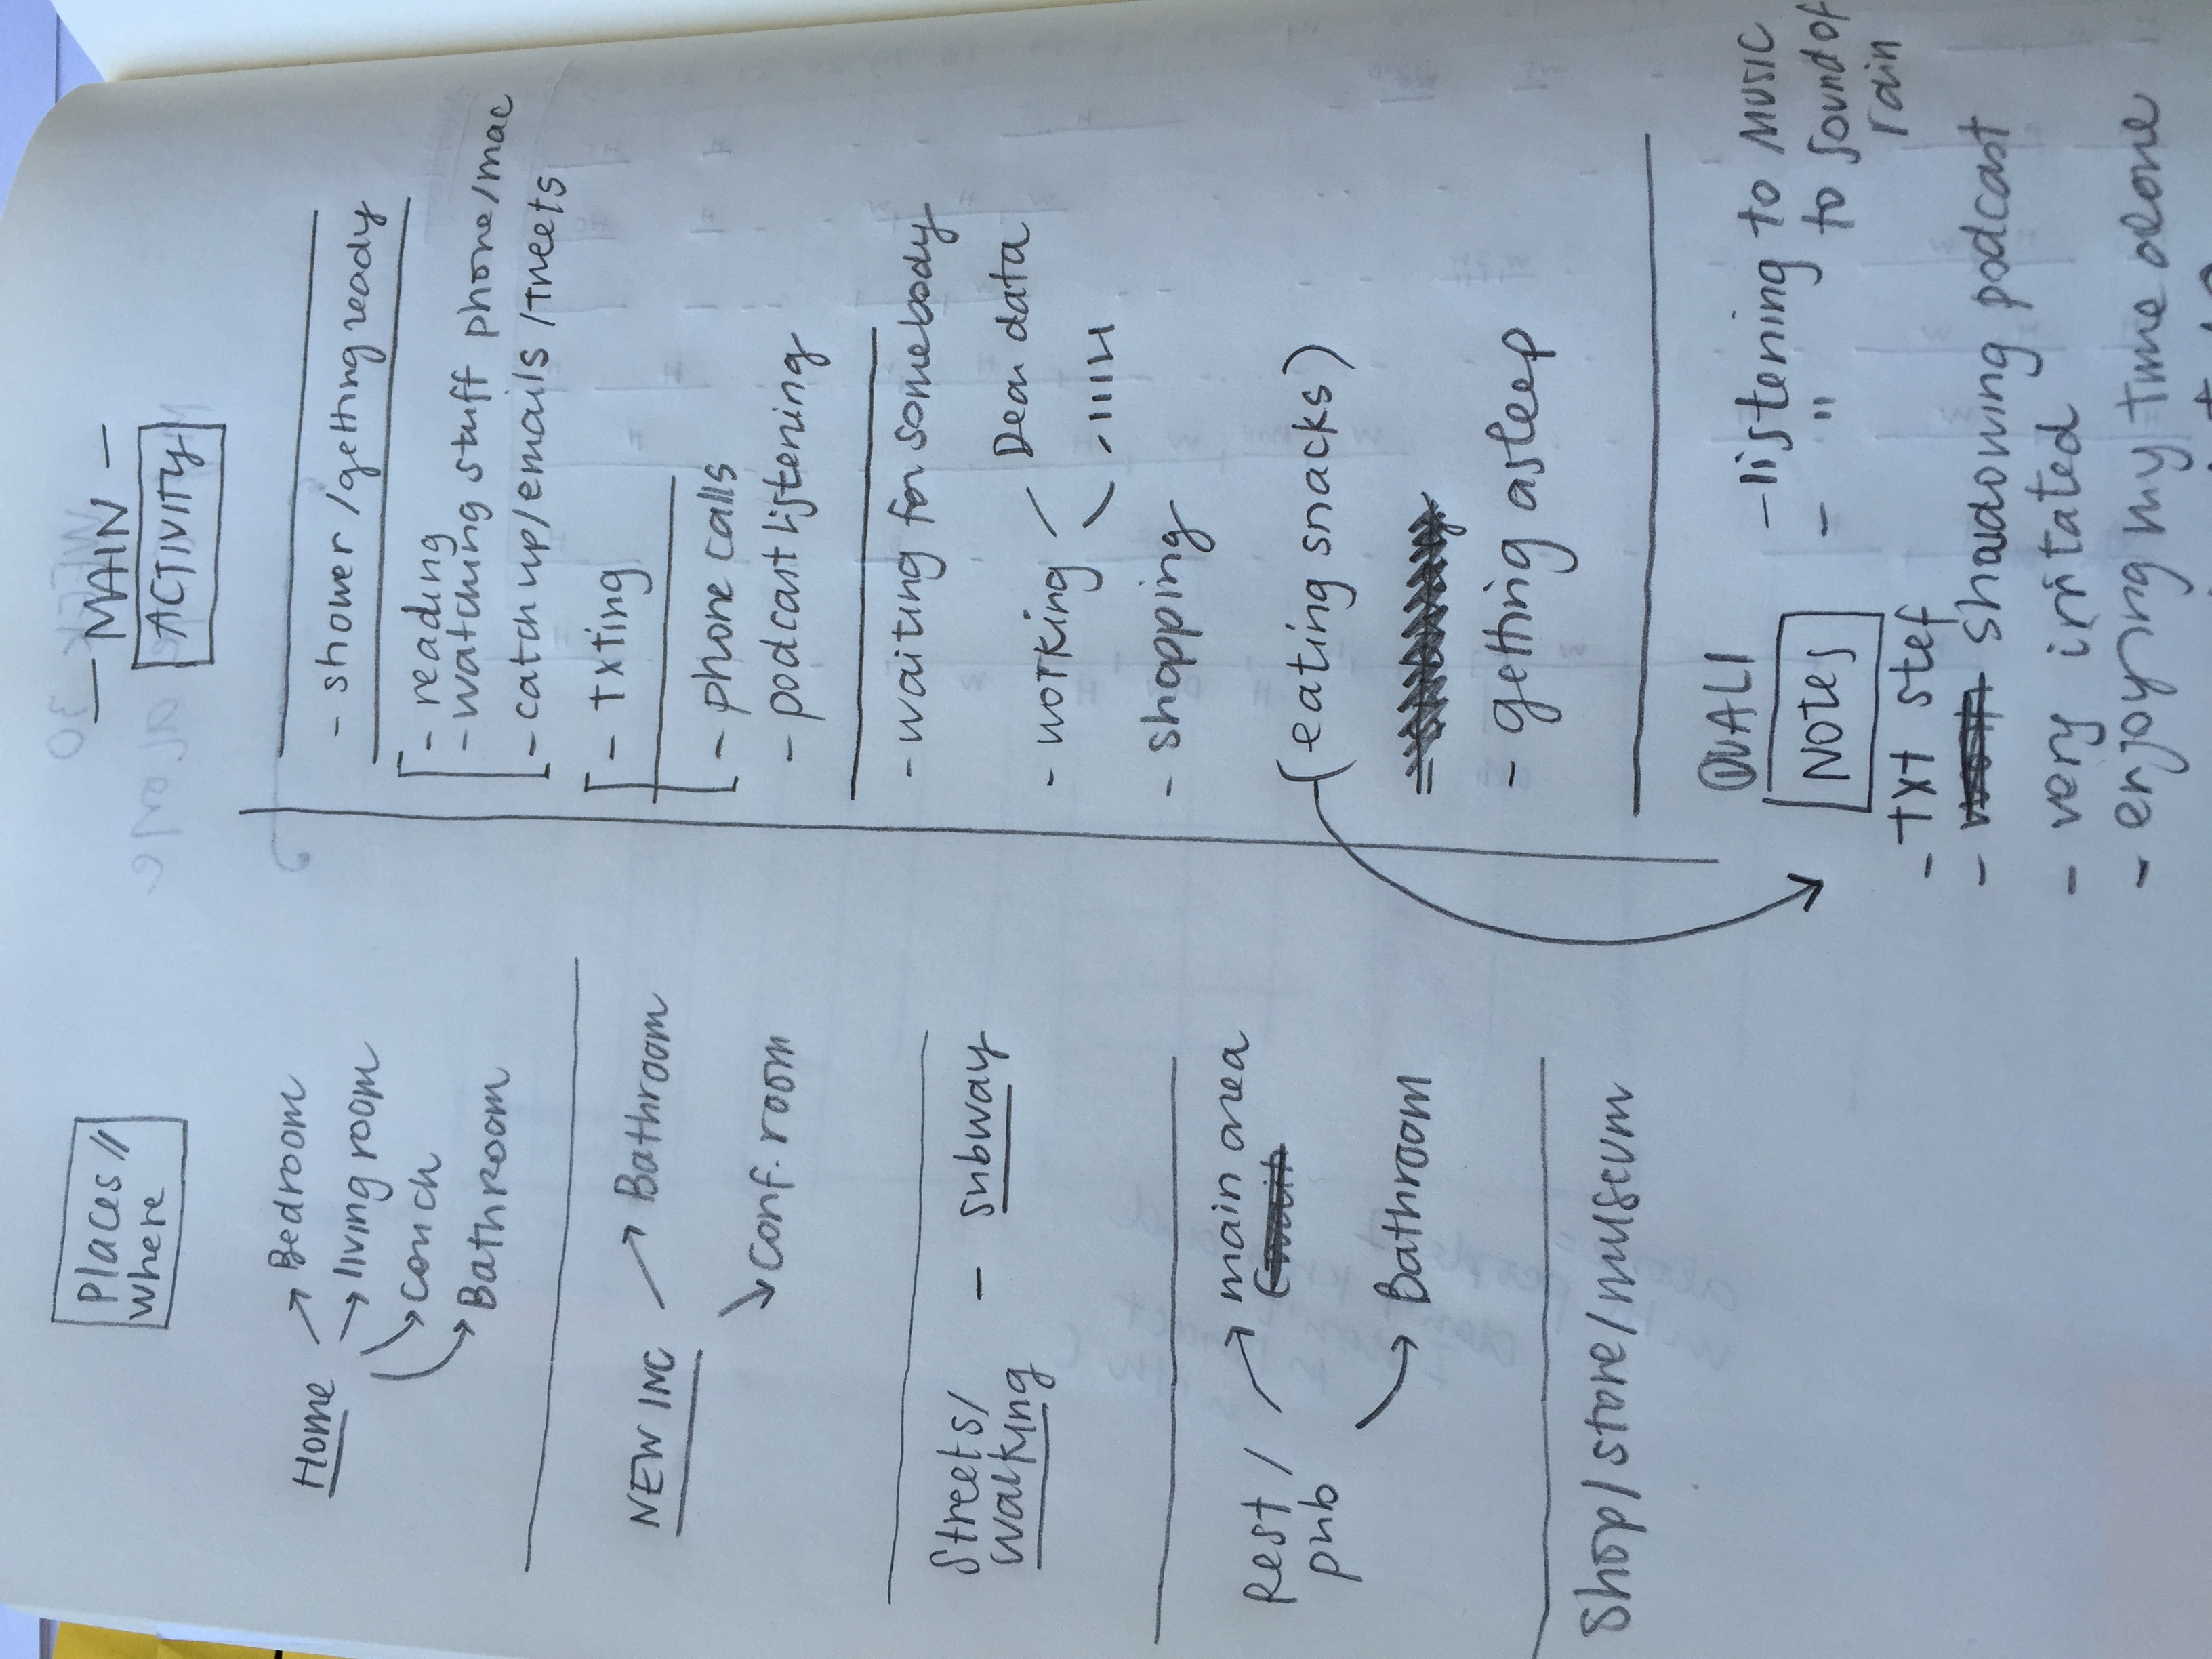 Places //
where
Home
Bedroom
living room
couch
Bathroom
NEW INC
Bathroom
Conf. room
Streets/
walking
- subway
Rest /
pub
main area
Bathroom
Shop/store/museum
— MAIN —
ACTIVITY
- shower/getting ready
- reading
- watching stuff phone/mac
- catch up/emails/tweets
- txting
- phone calls
- podcast listening
- waiting for somebody
- working
Dear data
- shopping
(eating snacks)
- getting asleep
QUALI
NOTES
- listening to music
- " to sound of
rain
- Txt stef
- shadowing podcast
- very irritated
- enjoying my time alone